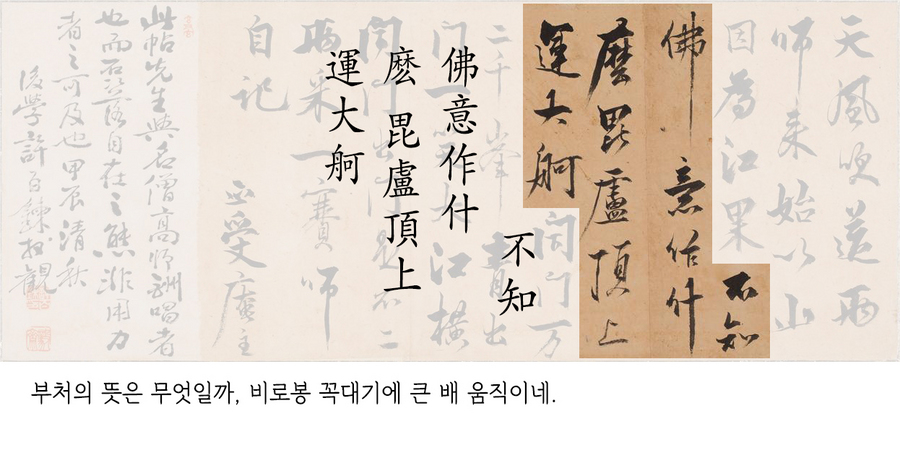 天風吹送雨
師来始以山
因爲江果不知
佛意作什
麽毘盧頂上
運大舸閉門万
二千峰青出
門一大江橫
自記
不知
佛意作什
麽毘盧頂上
運大舸
此帖先生與名僧高師酬唱者
也而落自在之態非用力
者之可及也甲辰清秋
後學許百鍊觀
부처의 뜻은 무엇일까, 비로봉 꼭대기에 큰 배 움직이네.